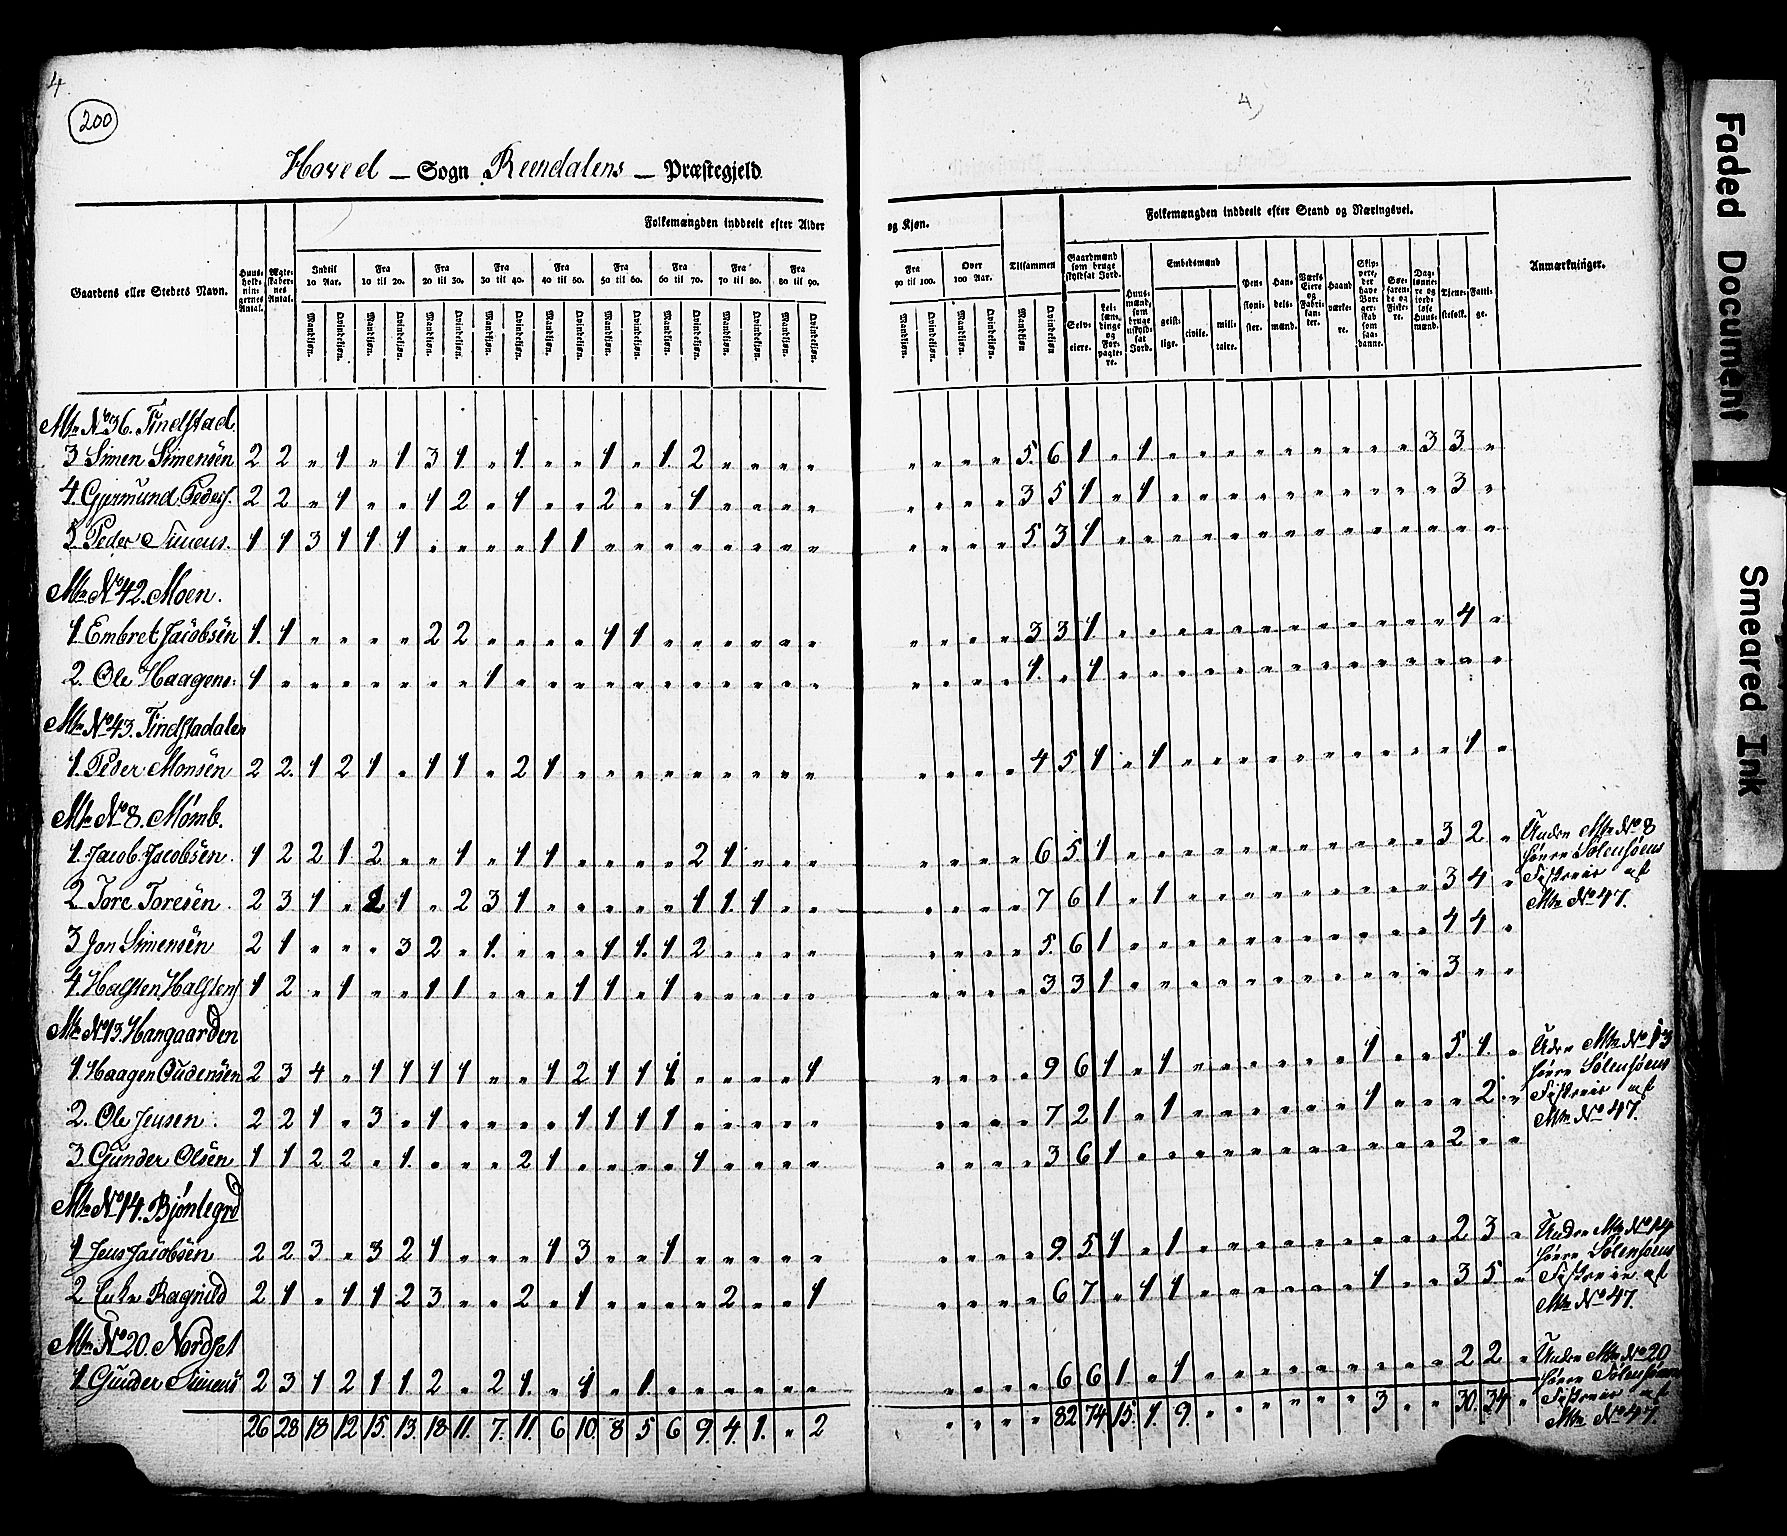 4
200
4
Hoved — Sogn Rendalens — Præstegjeld
Folkemængden inddeelt efter Alder og Kjøn.
Folkemængden inddeelt efter Stand og Næringsvei.
Gaardens eller Stedets Navn.
Huusholdningernes Antal.
Ægteskabernes Antal.
Indtil 10 Aar.
Fra 10 til 20.
Fra 20 til 30.
Fra 30 til 40.
Fra 40 til 50.
Fra 50 til 60.
Fra 60 til 70.
Fra 70 til 80.
Fra 80 til 90.
Fra 90 til 100.
Over 100 Aar.
Tilsammen
Mandkjøn. Qvindekjøn.
Gaardmænd som bruge skyldsat Jord.
Selveiere.
Leilændinge og Forpagtere.
Huusmænd, som bruge uskyldsat Jord.
Embedsmænd
geistlige.
civile.
militaire.
Pensionister.
Handelsmænd.
Værks Eiere og Fabrikanter.
Haandværkere.
Skippere, der have Borgerskab som saadanne.
Søefarende og Fiskere.
Daglønnere og jordløse Huusmænd.
Tjenestefolk.
Fattige.
Anmærkninger.
Mtr No 36. Findstad.
3 Simen Simensen 2 2 „ 1 „ 1 3 1 „ 1 „ „ 1 „ 1 2 „ „ „ „ „ „ „ „ 5 6 1 „ 1 „ „ „ „ „ „ „ „ „ 3 3 „
4. Gjermund Peders. 2 2 „ 1 „ „ 1 2 „ 1 „ „ 2 „ „ 1 „ „ „ „ „ „ „ „ 3 5 1 „ 1 „ „ „ „ „ „ „ „ „ „ 3 „
5. Peder Simens. 1 1 3 1 1 1 „ „ „ „ 1 1 „ „ „ „ „ „ „ „ „ „ „ „ 5 3 1 „ „ „ „ „ „ „ „ „ „ „ „ „ „
Mtr No 42. Moen.
1. Embret Jacobsen 1 1 „ „ „ „ 2 2 „ „ „ „ 1 1 „ „ „ „ „ „ „ „ „ „ 3 3 1 „ „ „ „ „ „ „ „ „ „ „ „ 4 „
2. Ole Haagens. 1 „ „ „ „ „ „ „ 1 „ „ „ „ „ „ „ „ „ „ „ „ „ „ „ 1 „ 1 „ „ „ „ „ „ „ „ „ „ „ „ „ „
Mtr No 43. Findstadalen
1. Peder Monsen 2 2 1 2 1 „ 1 1 „ 2 1 „ „ „ „ „ „ „ „ „ „ „ „ „ 4 5 1 „ 1 „ „ „ „ „ „ „ „ „ „ 1 „
Mtr No 8. Mømb.
1. Jacob Jacobsen 1 2 2 1 2 „ „ 1 „ 1 1 „ „ „ „ 2 1 „ „ „ „ „ „ „ 6 5 1 „ „ „ „ „ „ „ „ „ „ „ 3 2 „ Under Mtr No 8
høre Sølensøens
Fiskerie af
Mtr No 47.
2 Tore Toresen 2 3 1 „ 2 1 „ 2 3 1 „ „ „ „ „ 1 1 1 „ „ „ „ „ „ 7 6 1 „ 1 „ „ „ „ „ „ „ „ „ 3 4 „
3 Jon Simensen 2 1 „ „ „ 3 2 „ 1 „ „ „ 1 1 1 2 „ „ „ „ „ „ „ „ 5 6 1 „ „ „ „ „ „ „ „ „ „ „ 4 4 „
4. Halsten Halstens. 1 2 „ 1 „ „ 1 1 „ „ „ 1 1 „ 1 „ „ „ „ „ „ „ „ „ 3 3 1 „ „ „ „ „ „ „ „ „ „ „ 3 „ „
Mtr No 13. Hangaarden
1. Haagen Oudensen 2 3 4 „ 1 1 1 1 „ „ 1 2 1 1 1 „ „ „ „ 1 „ „ „ „ 9 6 1 „ 1 „ „ „ „ „ „ 1 „ „ 5 1 „ Under Mtr No 13
høre Sølensøens
Fiskerie af
Mtr No 47.
2. Ole Jensen 2 2 1 „ 3 „ 1 „ „ „ „ 1 1 1 1 „ „ „ „ „ „ „ „ „ 7 2 1 „ 1 „ „ „ „ „ „ 1 „ „ „ 2 „
3. Gunder Olsen 1 1 2 2 „ 1 „ „ „ 2 1 „ „ „ „ 1 „ „ „ „ „ „ „ „ 3 6 1 „ „ „ „ „ „ „ „ „ „ „ 2 „ „
Mtr No 14. Bjønlegrd
1 Jens Jacobsen 2 2 3 „ 3 2 1 „ „ „ 1 3 „ „ 1 „ „ „ „ „ „ „ „ „ 9 5 1 „ 1 „ „ „ „ „ „ „ „ „ 2 3 „ Under Mtr No 14
høre Sølensøens
Fiskerie af
Mtr No 47.
2 Enke Ragnild 2 1 „ 1 1 2 3 „ „ 2 „ 1 „ „ „ „ 2 „ „ 1 „ „ „ „ 6 7 „ 1 1 „ „ „ „ „ „ 1 „ „ 3 5 „
Mtr No 20. Nordset
1 Gunder Simens 2 3 1 2 1 1 2 „ 2 1 „ 1 „ 1 „ „ „ „ „ „ „ „ „ „ 6 6 1 „ 1 „ „ „ „ „ „ „ „ „ 2 2 „ Under Mtr No 20
høre Sølensøens
Fiskerie af
Mtr No 47.
26 28 18 12 15 13 18 11 7 11 6 10 8 5 6 9 4 1 „ 2 „ „ „ „ 82 74 15 1 9 „ „ „ „ „ „ 3 „ „ 30 34 „
Faded Document
Smeared Ink